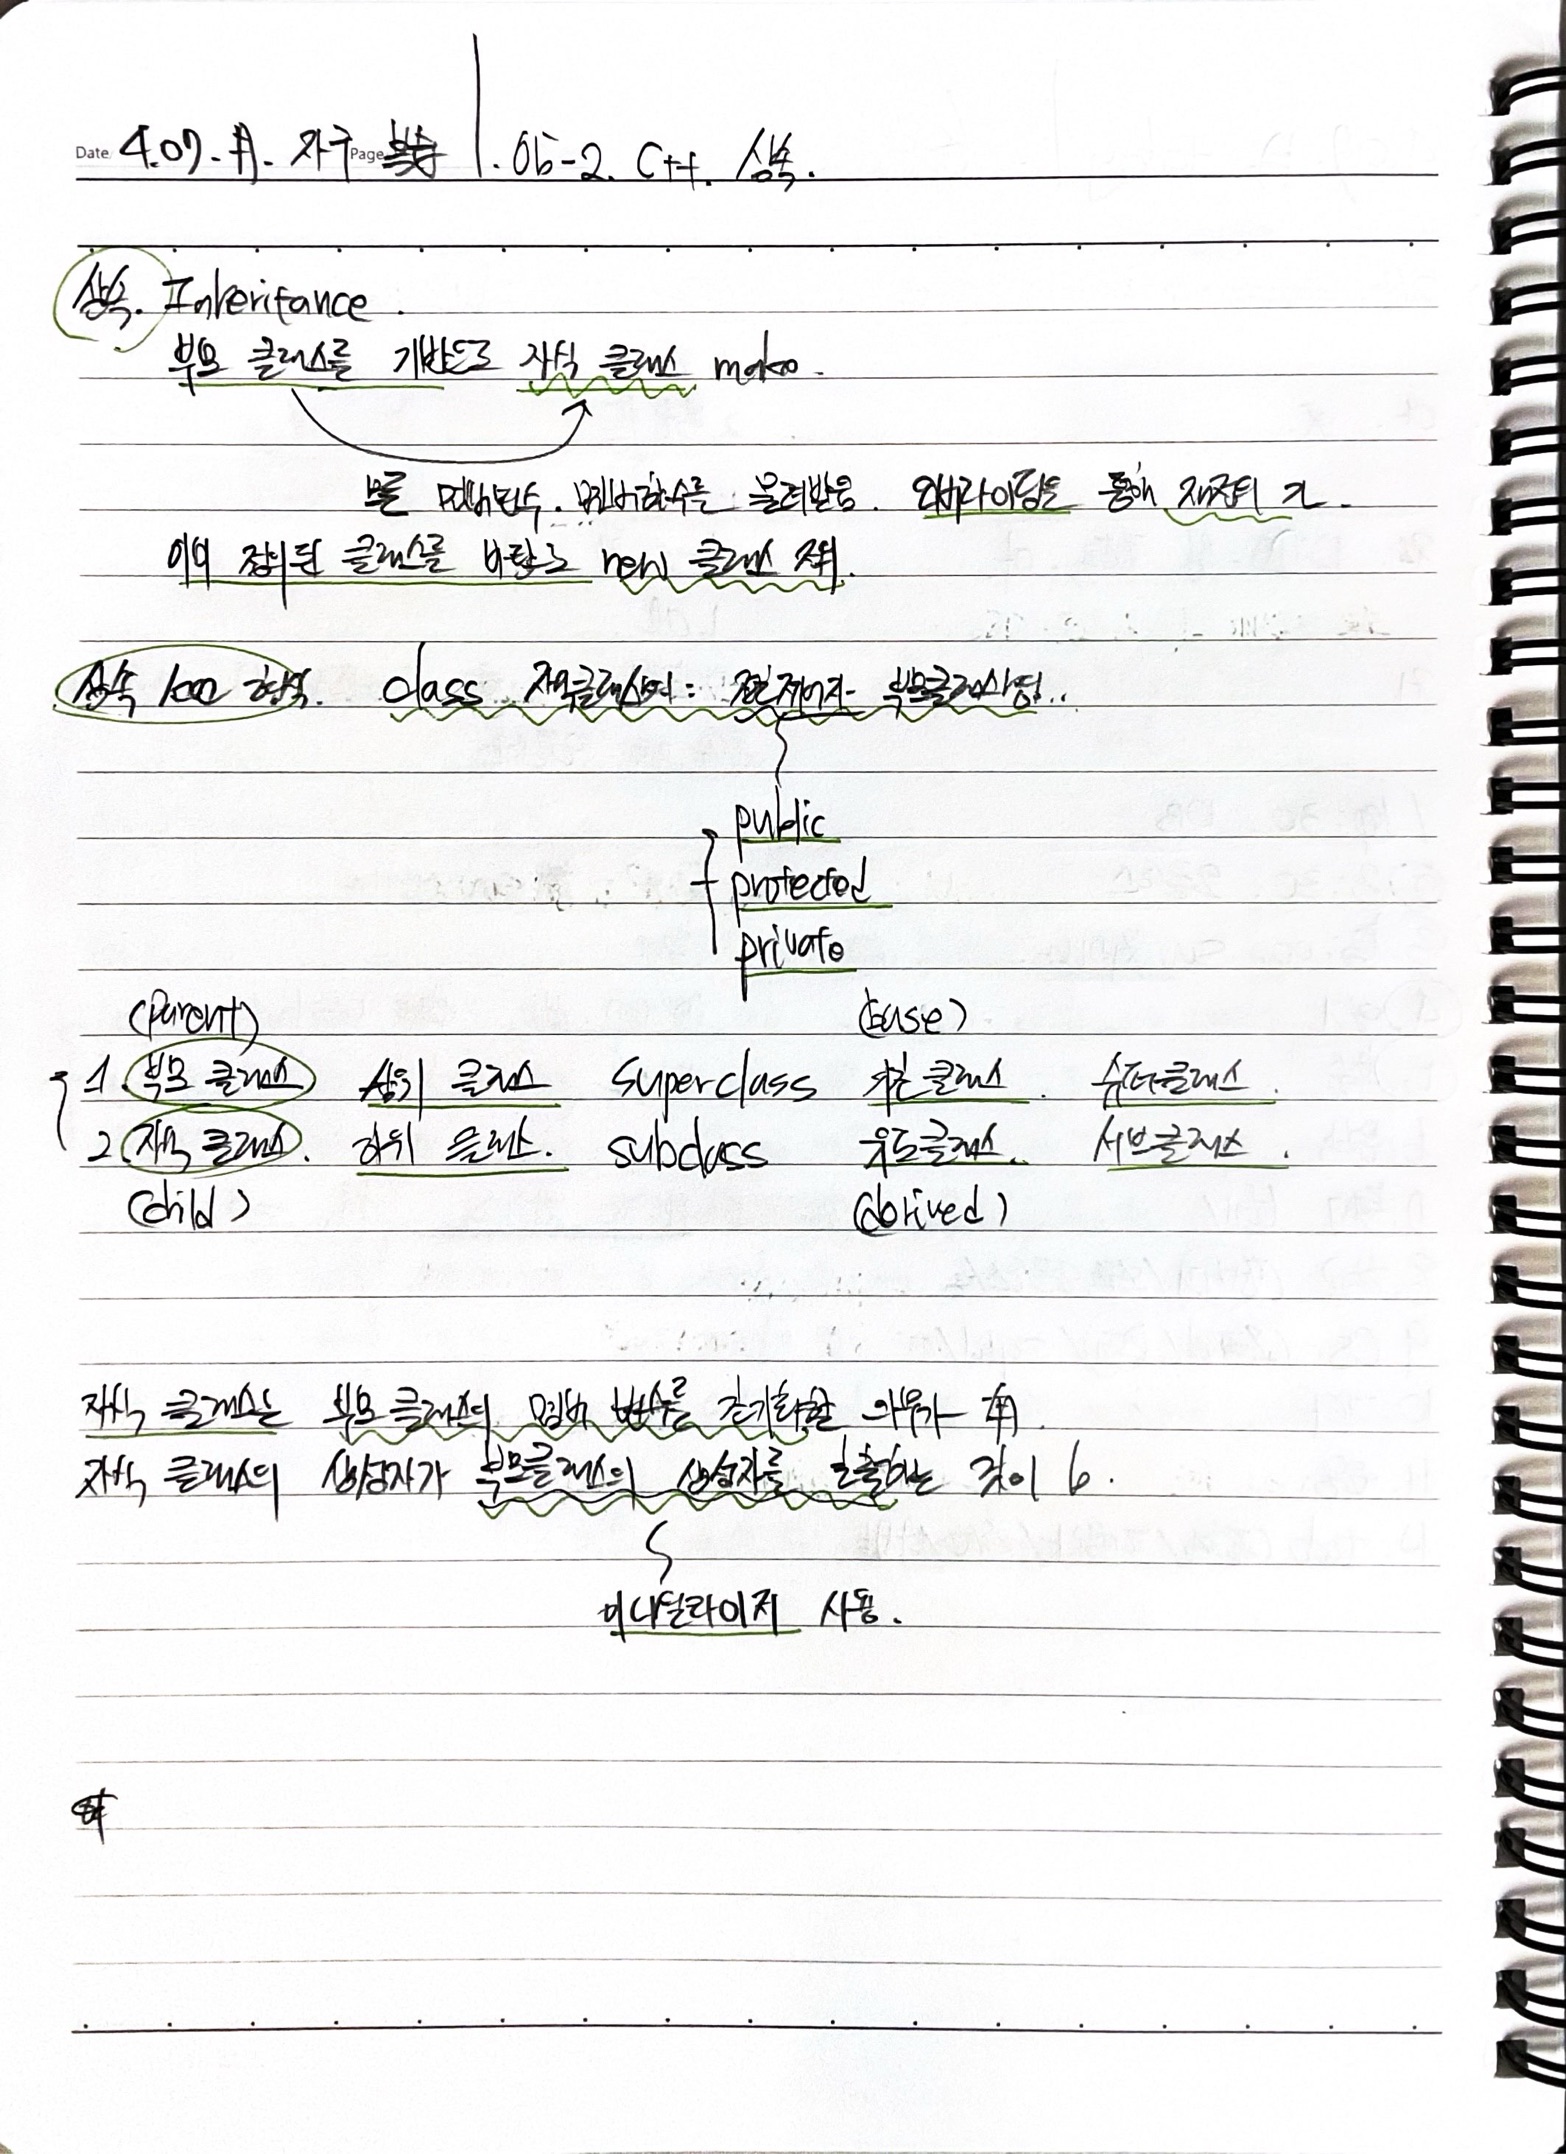 Date 4.07.月. 자구 Page 1.06-2. C++. 상속.
상속. Inheritance.
부모 클래스를 기반으로 자식 클래스 make.
모든 멤버변수. 멤버함수를 물려받음. 오버라이딩을 통해 재정의 가.
이미 정의된 클래스를 바탕으로 new 클래스 정의.
상속 형식. class 자식클래스명: 접근제어자 부모클래스명..
public
protected
private
(parent) (base)
1. 부모 클래스 상위 클래스 Superclass 기본 클래스. 슈퍼클래스.
2 자식 클래스. 하위 클래스. subclass 유도클래스. 서브클래스.
(child) (derived)
자식 클래스는 부모 클래스의 멤버 변수를 초기화할 의무가 有.
자식 클래스의 생성자가 부모클래스의 생성자를 호출하는 것이 6.
이니셜라이저 사용.